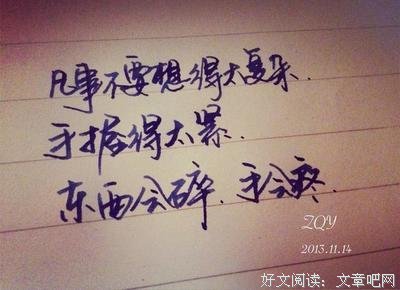 凡事不要想得太复杂.
手握得太紧.
东西会碎.手会疼.
ZQY
2013.11.14
好文阅读：文章吧网